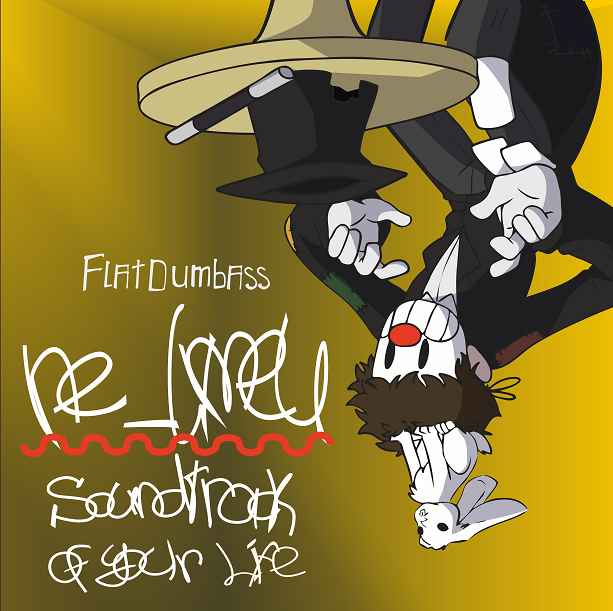 FLAtDumbAss
Soundtrack
of your Life